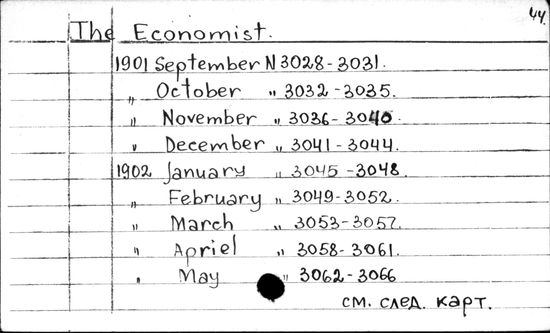 44.
The Economist.
1901 September N 3028-3031.
„ October „ 3032-3035.
„ November „ 3036-3040.
„ December „ 3041-3044.
1902 January „ 3045-3048.
„ February „ 3049-3052.
„ March „ 3053-3057.
„ Apriel „ 3058-3061.
„ May „ 3062-3066
см. след. карт.